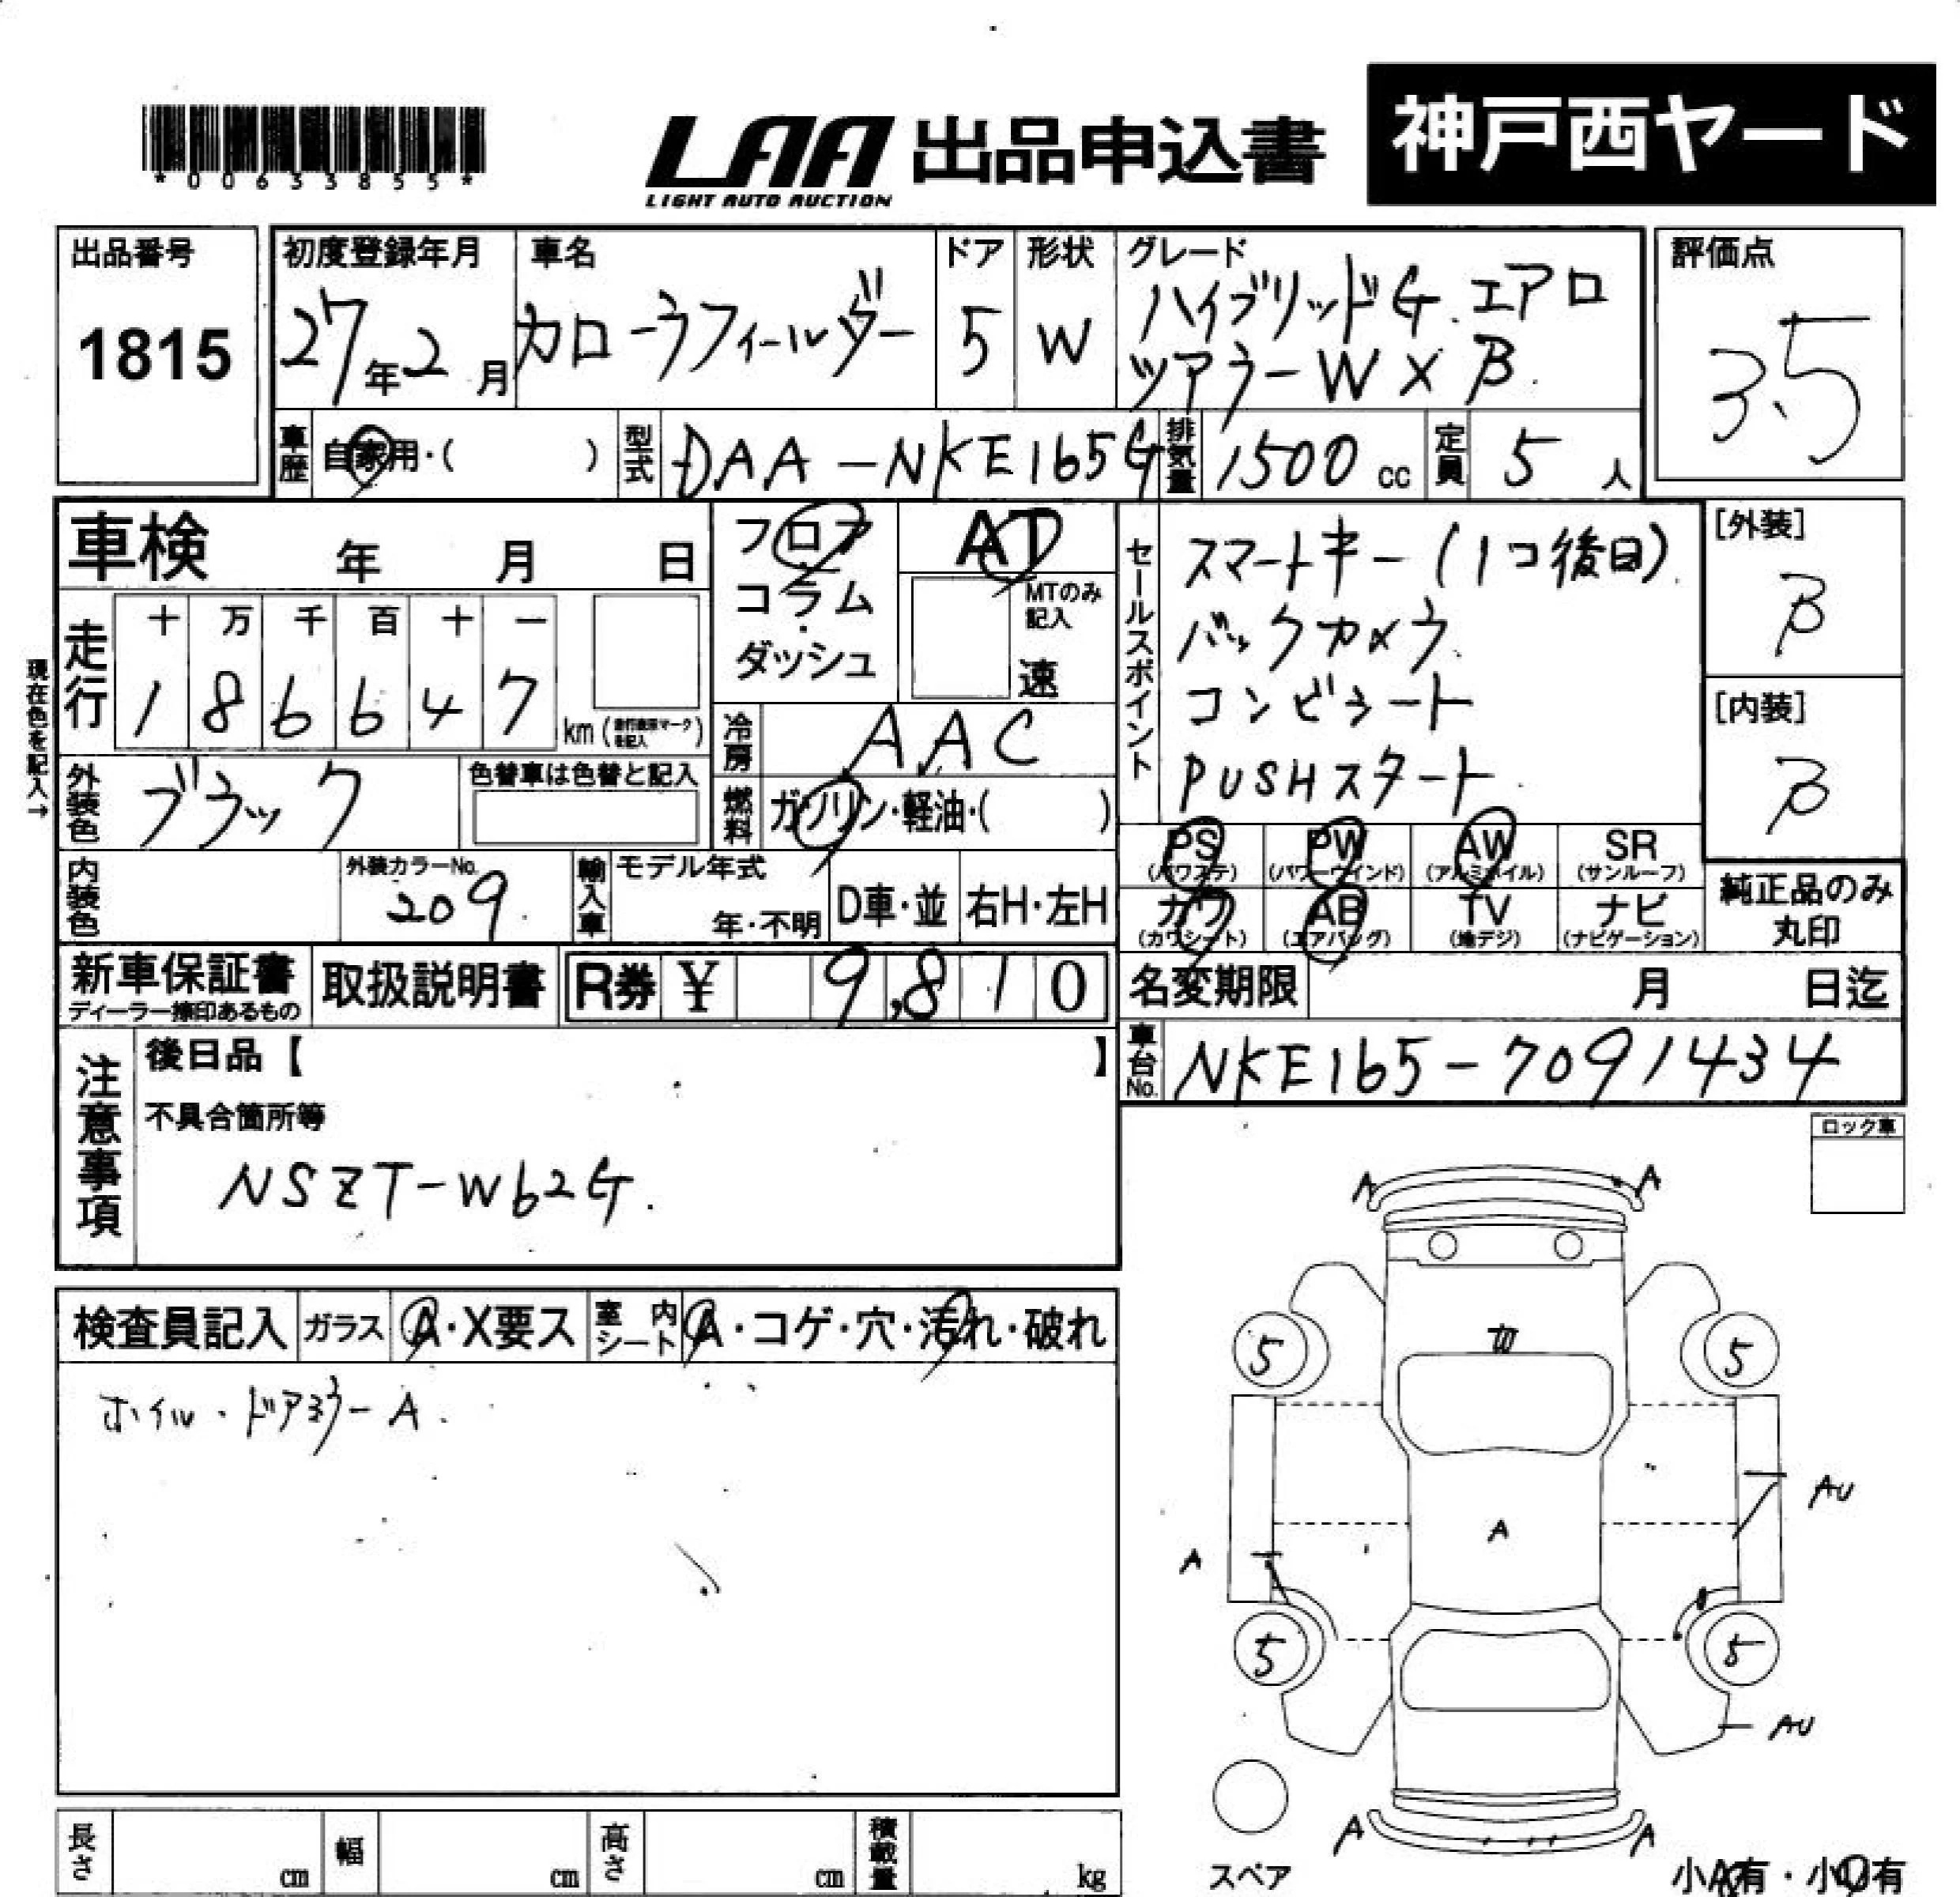 *00633855*
LAA 出品申込書 神戸西ヤード
LIGHT AUTO AUCTION
出品番号
1815
初度登録年月
27年2月
車名
カローラフィールダー
ドア
5
形状
W
グレード
ハイブリッドG.エアロ
ツアラーW×B.
評価点
3.5
車歴 自家用・( )
型式 DAA-NKE165G
排気量 1500 cc
定員 5 人
車検 年 月 日
フロア
コラム
ダッシュ
AT
MTのみ
記入
速
セールスポイント
スマートキー(1コ後日).
バックカメラ.
コンビシート
PUSHスタート.
[外装]
B
[内装]
B
現在色を記入→
走行
十 万 千 百 十 一
1 8 6 6 4 7
km
冷房 AAC
外装色 ブラック
色替車は色替と記入
燃料 ガソリン・軽油・( )
PS
(パワステ)
PW
(パワーウインド)
AW
(アルミホイル)
SR
(サンルーフ)
カワ
(カワシート)
AB
(エアバッグ)
TV
(地デジ)
ナビ
(ナビゲーション)
純正品のみ
丸印
内装色
外装カラーNo.
209.
輸入車
モデル年式
年・不明
D車・並
右H・左H
新車保証書
ディーラー捺印あるもの
取扱説明書
R券 ¥ 9,810
名変期限 月 日迄
車台No. NKE165-7091434
注意事項
後日品【 】
不具合箇所等
NSZT-W62G.
ロック車
検査員記入
ガラス A・X要ス
室内シート A・コゲ・穴・汚れ・破れ
ホイル・ドアミラーA.
A A
5 5
AU
A
A
5 5
AU
A A
スペア
小A有・小U有
長さ cm
幅 cm
高さ cm
積載量 kg